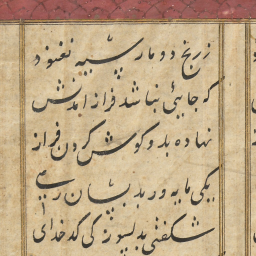 ز رنج دو مار سیه نغنود
که جایی نباشد فراز آمدنش
نهاده بدو گوش گردن فراز
یکی مایه ور بد بسان رهی
شگفتی بدلسوزگی کدخدای